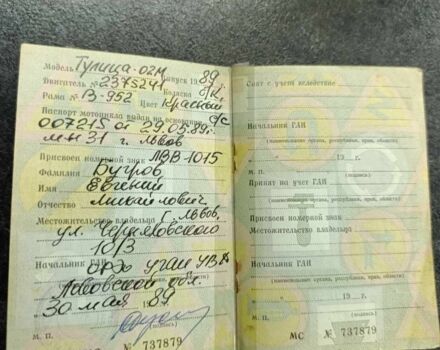 Модель Тулица-02М
Двигатель № 2375241 Выпуск 1989 г.
Коляска б/к
Рама № В-952 Цвет Красный
Паспорт мотоцикла выдан на основании с/с
007215 от 29.05.89г.
г. Львов
Присвоен номерной знак ЛВВ-1015
Фамилия Бугров
Имя Евгений
Отчество Михайлович
Местожительство владельца г. Львов,
ул. Черняховского
10/3
Начальник ГАИ ОРЭР УГАИ УВД
Львовской обл.
30 мая 1989
(подпись)
М. П.
№ 737879
Снят с учета вследствие
Начальник ГАИ
(наименование органа, республики, края, области)
19 г.
М. П. (подпись)
Принят на учет ГАИ
(наименование органа, республики, края, области)
Присвоен номерной знак
Местожительство владельца
Начальник ГАИ
(наименование органа, республики, края, области)
« » 19 г.
М. П. (подпись)
МС № 737879